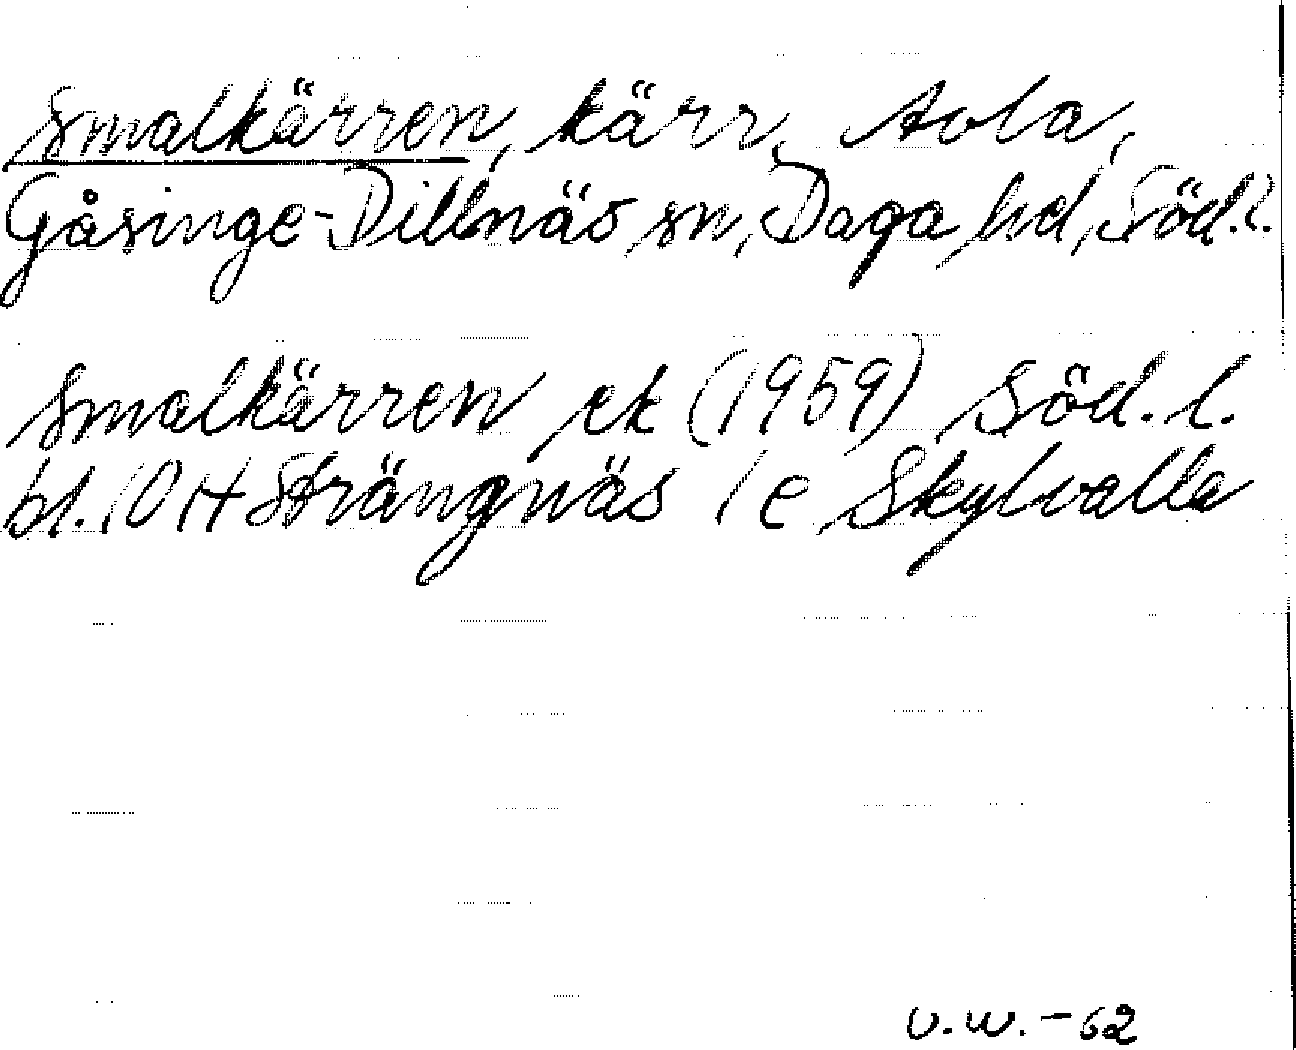 Smalkärren, kärr, Aola,
Gåsinge-Dillnäs sn, Daga hd, Söd.l.
Smalkärren ek (1959) Söd. l.
bl. 10 H Strängnäs 1 e Skylvalla
U.W. -62